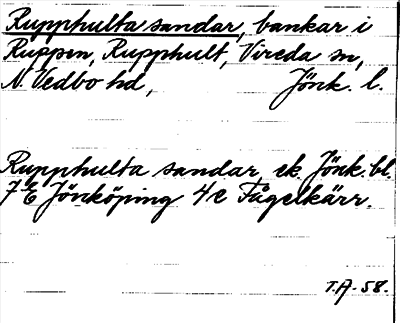 Rupphulta sandar, bankar i
Ruppen, Rupphult, Vireda sn,
N. Vedbo hd, Jönk. l.
Rupphulta sandar, ek. Jönk. bl.
7 E Jönköping 4 e Fågelkärr.
T.A-58.